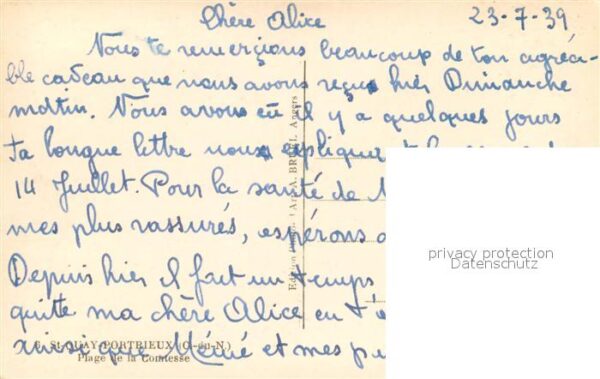 Chère Alice 23-7-39
Nous te remerçions beaucoup de ton agréa-
ble cadeau que nous avons reçu hier Dimanche
matin. Nous avons eu il y a quelques jours
ta longue lettre nous expliquant
14 Juillet. Pour la santé de
mes plus rassurés, espérons
Depuis hier il fait un temps
quitte ma chère Alice en
ainsi que Mémé et mes
privacy protection
Datenschutz
St-QUAY-PORTRIEUX (C.-du-N.)
Plage de la Comtesse
A. BRUEL Angers